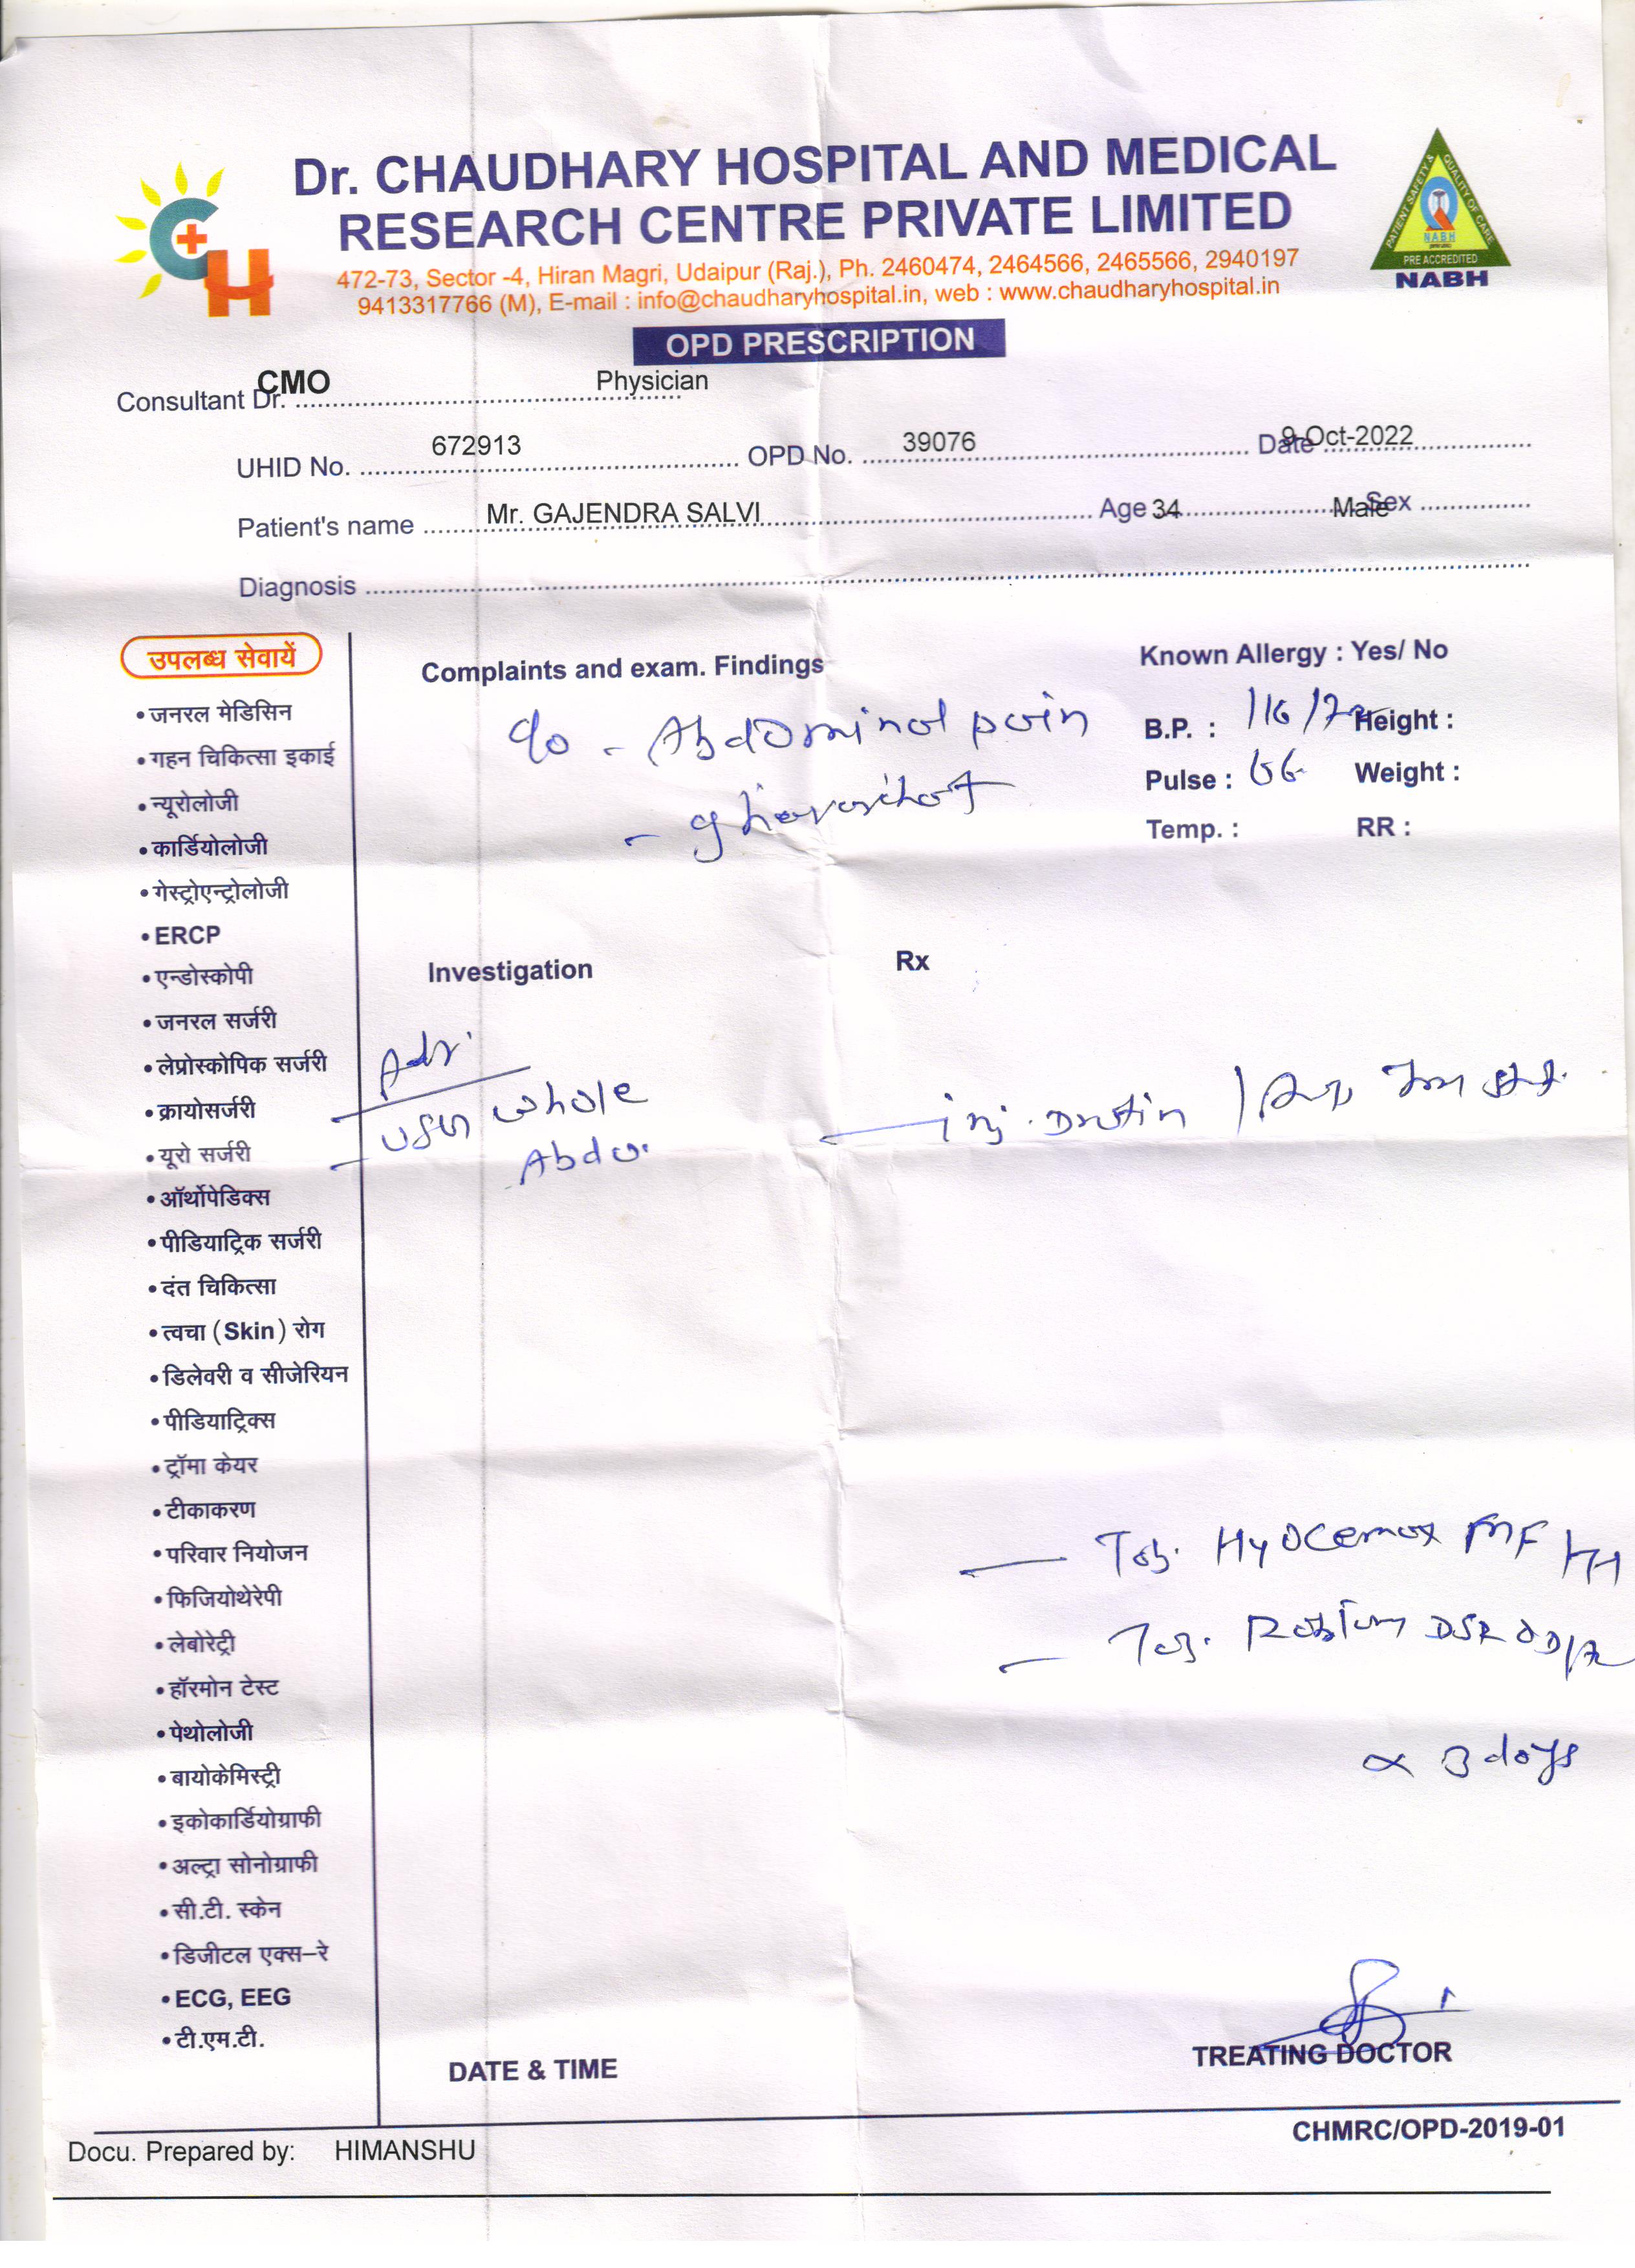 Dr. CHAUDHARY HOSPITAL AND MEDICAL
RESEARCH CENTRE PRIVATE LIMITED
472-73, Sector -4, Hiran Magri, Udaipur (Raj.), Ph. 2460474, 2464566, 2465566, 2940197
9413317766 (M), E-mail : info@chaudharyhospital.in, web : www.chaudharyhospital.in
CH
PATIENT SAFETY & QUALITY OF CARE
NABH
PRE ACCREDITED
NABH
OPD PRESCRIPTION
Consultant Dr. CMO Physician
UHID No. 672913 OPD No. 39076 Date 9-Oct-2022
Patient's name Mr. GAJENDRA SALVI Age 34 Male Sex
Diagnosis
उपलब्ध सेवायें
• जनरल मेडिसिन
• गहन चिकित्सा इकाई
• न्यूरोलोजी
• कार्डियोलोजी
• गेस्ट्रोएन्ट्रोलोजी
• ERCP
• एन्डोस्कोपी
• जनरल सर्जरी
• लेप्रोस्कोपिक सर्जरी
• क्रायोसर्जरी
• यूरो सर्जरी
• ऑर्थोपेडिक्स
• पीडियाट्रिक सर्जरी
• दंत चिकित्सा
• त्वचा (Skin) रोग
• डिलेवरी व सीजेरियन
• पीडियाट्रिक्स
• ट्रॉमा केयर
• टीकाकरण
• परिवार नियोजन
• फिजियोथेरेपी
• लेबोरेट्री
• हॉरमोन टेस्ट
• पेथोलोजी
• बायोकेमिस्ट्री
• इकोकार्डियोग्राफी
• अल्ट्रा सोनोग्राफी
• सी.टी. स्केन
• डिजीटल एक्स–रे
• ECG, EEG
• टी.एम.टी.
Complaints and exam. Findings
c/o - Abdominal pain
Known Allergy : Yes/ No
B.P. : 116/ Height :
Pulse : 66 Weight :
Temp. : RR :
Investigation
Adv.
whole
Abdo.
Rx
— inj.
— Tab. Hyocemax MF
— Tab. DSR OD
x 3 days
DATE & TIME
TREATING DOCTOR
CHMRC/OPD-2019-01
Docu. Prepared by: HIMANSHU